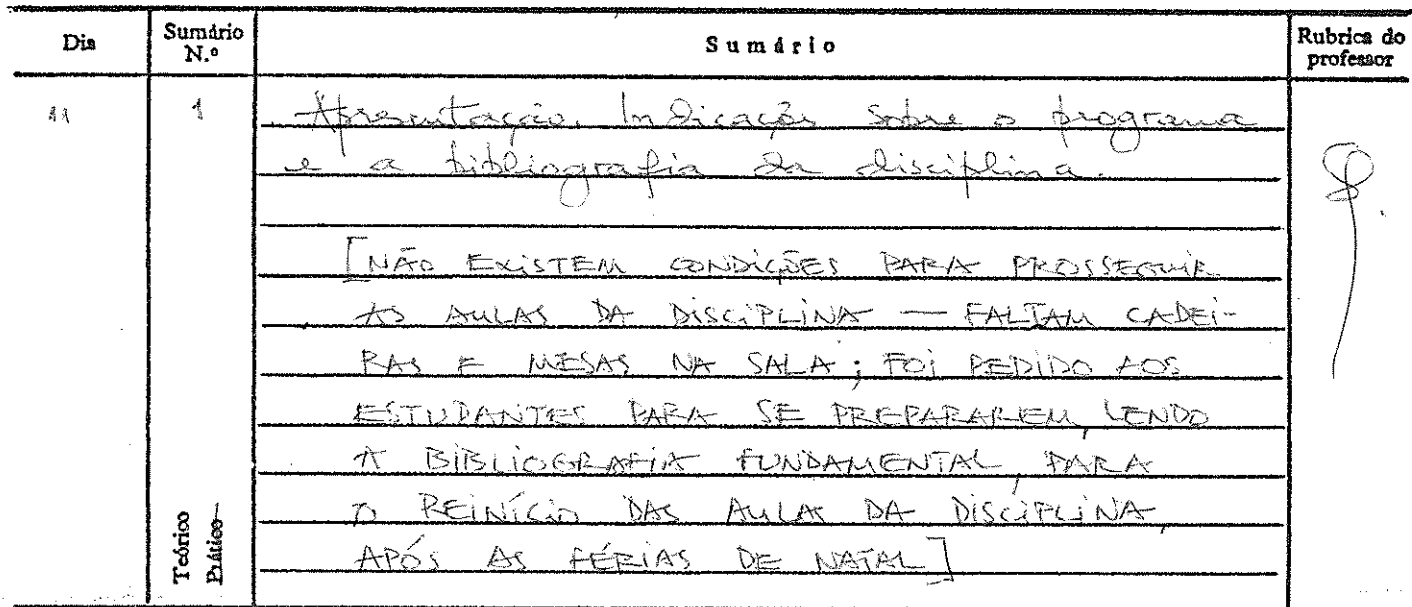 Dia
Sumário N.º
Sumário
Rubrica do professor
11
1
Apresentação. Indicações sobre o programa
e a bibliografia da disciplina.
[NÃO EXISTEM CONDIÇÕES PARA PROSSEGUIR
AS AULAS DA DISCIPLINA — FALTAM CADEI-
RAS E MESAS NA SALA; FOI PEDIDO AOS
ESTUDANTES PARA SE PREPARAREM, LENDO
A BIBLIOGRAFIA FUNDAMENTAL, PARA
O REINÍCIO DAS AULAS DA DISCIPLINA,
APÓS AS FÉRIAS DE NATAL]
Teórico
Prático